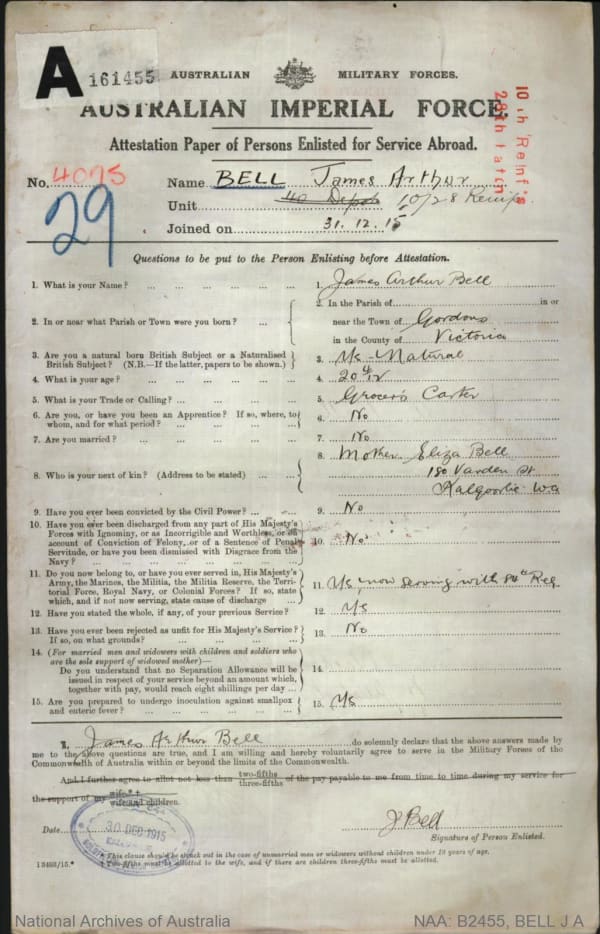 A 161455 AUSTRALIAN MILITARY FORCES.
AUSTRALIAN IMPERIAL FORCE.
10th Reinf's
28th Batch
Attestation Paper of Persons Enlisted for Service Abroad.
No. 4075 Name BELL James Arthur
29
Unit 40 Depot 10/28 Reinfs
Joined on 31.12.15
Questions to be put to the Person Enlisting before Attestation.
1. What is your Name? ... 1. James Arthur Bell
2. In or near what Parish or Town were you born? ... 2. In the Parish of in or
near the Town of Gordons
in the County of Victoria
3. Are you a natural born British Subject or a Naturalised
British Subject? (N.B.—If the latter, papers to be shown.) 3. Yes Natural
4. What is your age? ... 4. 20
5. What is your Trade or Calling? ... 5. Grocers Carter
6. Are you, or have you been an Apprentice? If so, where, to
whom, and for what period? ... 6. No
7. Are you married? ... 7. No
8. Who is your next of kin? (Address to be stated) ... 8. Mother Eliza Bell
180 Varden St
Kalgoorlie WA
9. Have you ever been convicted by the Civil Power? ... 9. No
10. Have you ever been discharged from any part of His Majesty's
Forces with Ignominy, or as Incorrigible and Worthless, or on
account of Conviction of Felony, or of a Sentence of Penal
Servitude, or have you been Dismissed with Disgrace from the
Navy? ... 10. No
11. Do you now belong to, or have you ever served in, His Majesty's
Army, the Marines, the Militia, the Militia Reserve, the Terri-
torial Force, Royal Navy, or Colonial Forces? If so, state
which, and if not now serving, state cause of discharge ... 11. Yes, now serving with 84th Reg
12. Have you stated the whole, if any, of your previous Service? 12. Yes
13. Have you ever been rejected as unfit for His Majesty's Service?
If so, on what grounds? ... 13. No
14. (For married men and widowers with children and soldiers who
are the sole support of widowed mother)—
Do you understand that no Separation Allowance will be
issued in respect of your service beyond an amount which,
together with pay, would reach eight shillings per day ... 14.
15. Are you prepared to undergo inoculation against smallpox
and enteric fever? ... 15. Yes
I, James Arthur Bell do solemnly declare that the above answers made by
me to the above questions are true, and I am willing and hereby voluntarily agree to serve in the Military Forces of the
Commonwealth of Australia within or beyond the limits of the Commonwealth.
And I further agree to allot not less than two-fifths three-fifths of the pay payable to me from time to time during my service for
the support of my wife*† wife and children.
Date 30 DEC 1915
J Bell
Signature of Person Enlisted.
* This clause should be struck out in the case of unmarried men or widowers without children under 18 years of age.
† Two-fifths must be allotted to the wife, and if there are children three-fifths must be allotted.
13403/15.*
National Archives of Australia NAA: B2455, BELL J A